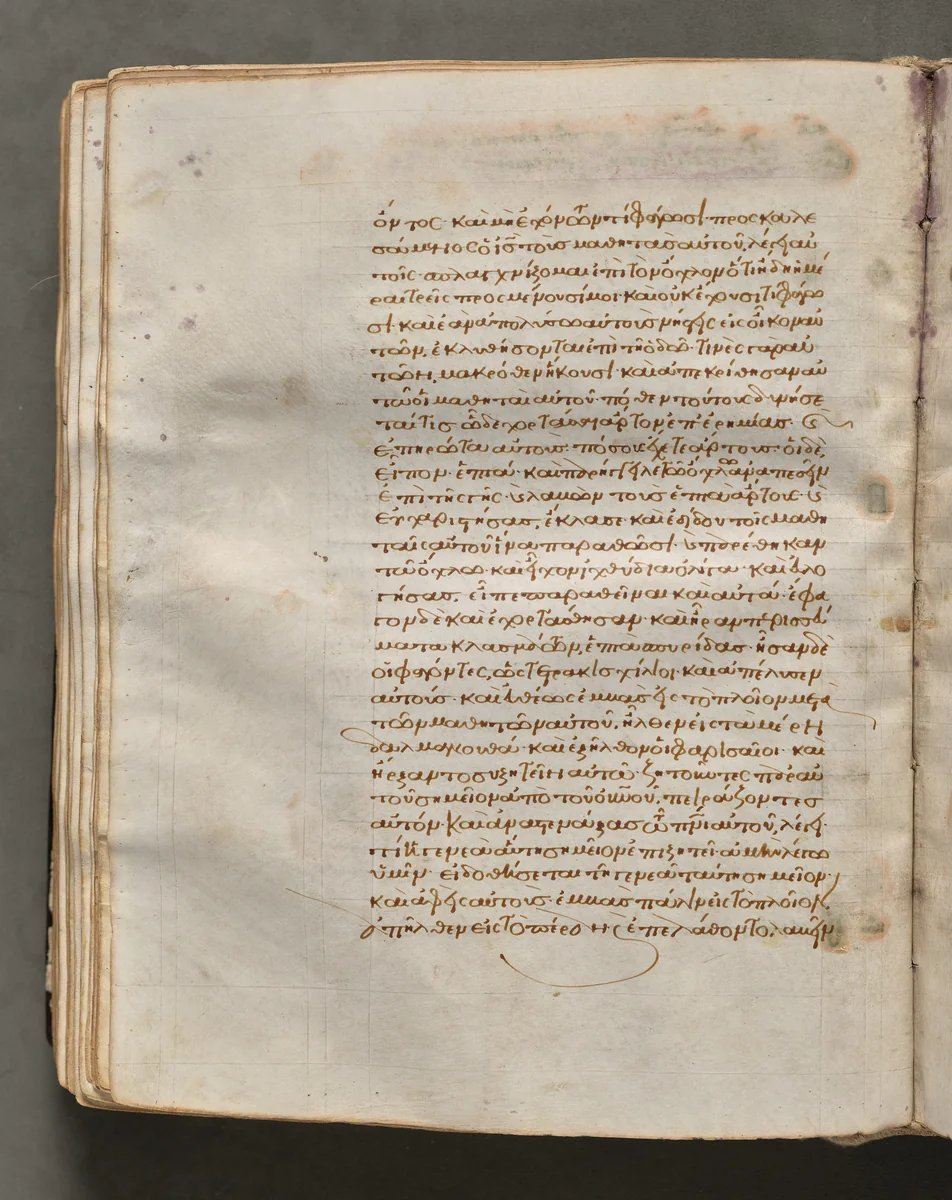 ὄντος· καὶ μὴ ἐχόντων τί φάγωσι· προσκαλε
σάμενος ὁ ις τοὺς μαθητὰς αὐτοῦ, λέγει αὐ
τοῖς· σπλαγχνίζομαι ἐπὶ τὸν ὄχλον ὅτι ἤδη ἡμέ
ραι τρεῖς προσμένουσί μοι· καὶ οὐκ ἔχουσι τί φάγω
σι· καὶ ἐὰν ἀπολύσω αὐτοὺς νήστεις εἰς οἶκον αὐ
τῶν, ἐκλυθήσονται ἐν τῇ ὁδῷ· τινὲς γὰρ αὐ
τῶν, μακρόθεν ἥκουσι· καὶ ἀπεκρίθησαν αὐ
τῶ οἱ μαθηταὶ αὐτοῦ· πόθεν τούτους δυνήσε
ταί τις ὧδε χορτάσαι ἄρτων ἐπ' ἐρημίας· καὶ
ἐπηρώτα αὐτούς· πόσους ἔχετε ἄρτους· οἱ δὲ
εἶπον· ἑπτά· καὶ παρήγγειλε τῶ ὄχλω ἀναπεσεῖν
ἐπὶ τῆς γῆς· καὶ λαβὼν τοὺς ἑπτὰ ἄρτους· καὶ
εὐχαριστήσας, ἔκλασε· καὶ ἐδίδου τοῖς μαθη
ταῖς αὐτοῦ ἵνα παραθῶσι· καὶ παρέθηκαν
τῶ ὄχλω· καὶ εἶχον ἰχθύδια ὀλίγα· καὶ εὐλο
γήσας, εἶπε παραθεῖναι καὶ αὐτά· ἔφα
γον δὲ καὶ ἐχορτάσθησαν· καὶ ἦραν περισσεύ
ματα κλασμάτων, ἑπτὰ σπυρίδας· ἦσαν δὲ
οἱ φαγόντες, ὡς τετρακισχίλιοι· καὶ ἀπέλυσεν
αὐτούς· καὶ εὐθέως ἐμβὰς εἰς τὸ πλοῖον μετὰ
τῶν μαθητῶν αὐτοῦ, ἦλθεν εἰς τὰ μέρη
δαλμανουθά· καὶ ἐξῆλθον οἱ φαρισαῖοι· καὶ
ἤρξαντο συζητεῖν αὐτῶ· ζητοῦντες παρ' αὐ
τοῦ σημεῖον ἀπὸ τοῦ οὐνοῦ, πειράζοντες
αὐτόν· καὶ ἀναστενάξας τῶ πνι αὐτοῦ, λέγει·
τί ἡ γενεὰ αὕτη σημεῖον ἐπιζητεῖ· ἀμὴν λέγω
ὑμῖν· εἰ δοθήσεται τῇ γενεᾷ ταύτη σημεῖον·
καὶ ἀφεὶς αὐτούς· ἐμβὰς πάλιν εἰς τὸ πλοῖον,
ἀπῆλθεν εἰς τὸ πέραν· καὶ ἐπελάθοντο λαβεῖν